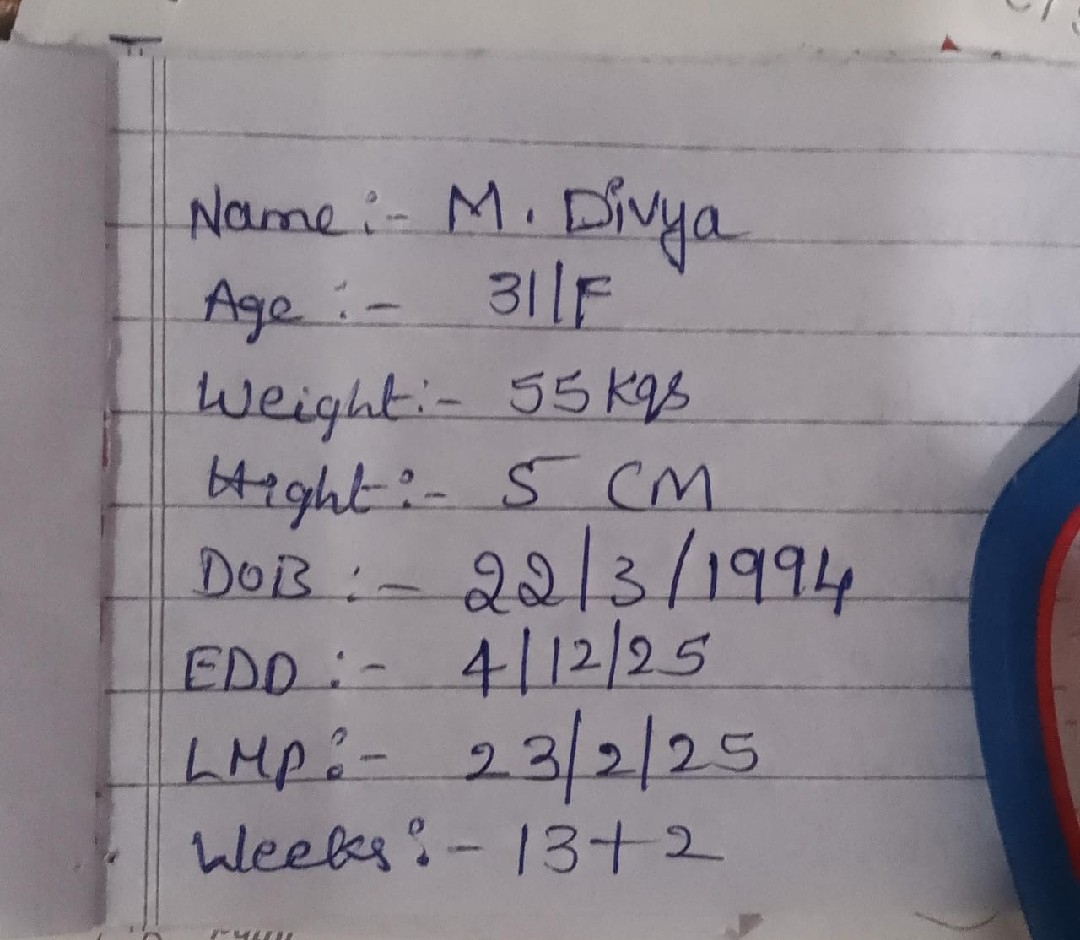 Name :- M. Divya
Age :- 31/F
Weight :- 55 kgs
Hight :- 5 CM
DOB :- 22/3/1994
EDD :- 4/12/25
LMP :- 23/2/25
Weeks :- 13+2